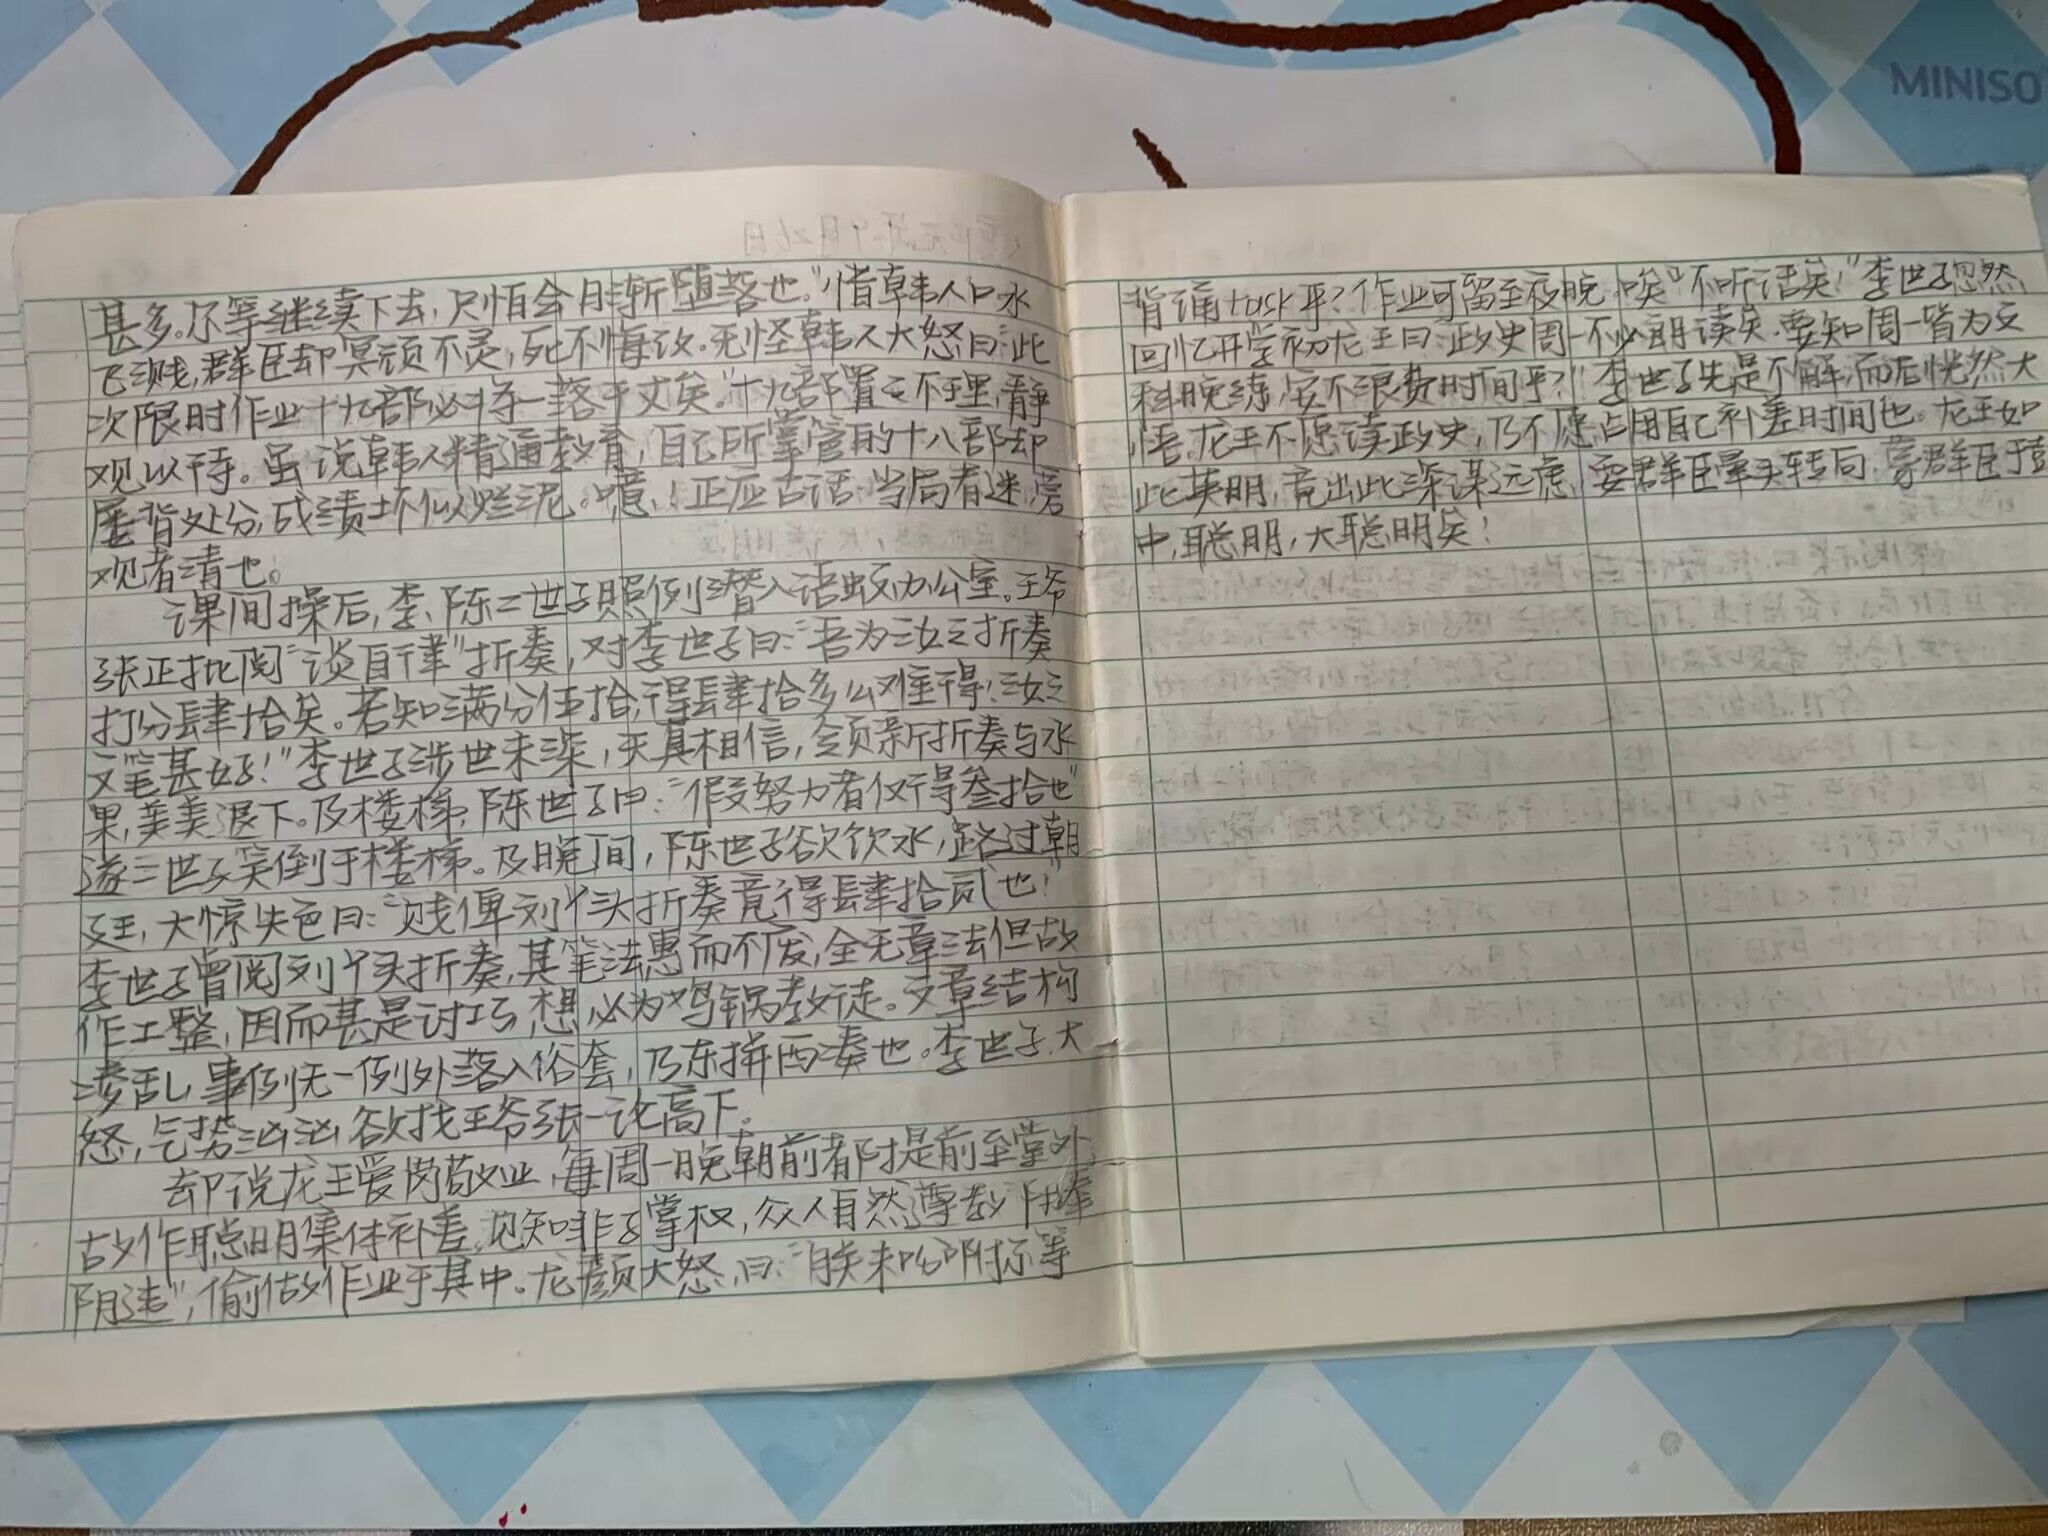 MINISO
甚多。尔等继续下去，只怕会日渐堕落也。”惜韩人口水
飞溅，群臣却冥顽不灵，死不悔改。无怪韩人大怒曰：“此
次限时作业十九部必将一落千丈矣。”十九部置之不理，静
观以待。虽说韩人精通教育，自己所掌管的十八部却
屡背处分，成绩坏似烂泥。噫！正应古话：当局者迷，旁
观者清也。
课间操后，李、陈二世子照例潜入语蚊办公室。王爷
张正批阅“谈自律”折奏，对李世子曰：“吾为汝之折奏
打分肆拾矣。若知满分伍拾，得肆拾多么难得！汝之
文笔甚好！”李世子涉世未深，天真相信，领新折奏与水
果，美美退下。及楼梯，陈世子曰：“假努力者仅得叁拾也”
遂二世子笑倒于楼梯。及晚间，陈世子欲饮水，路过朝
廷，大惊失色曰：“贱俾刘丫头折奏竟得肆拾贰也！”
李世子曾阅刘丫头折奏，其笔法惠而不废，全无章法但故
作工整，因而甚是讨巧，想必为鸡锅教走。文章结构
凌乱，事例无一例外落入俗套，乃东拼西凑也。李世子大
怒，气势汹汹欲找王爷张一论高下。
却说龙王爱岗敬业，每周一晚朝前都提前至堂外，
故作聪明集体补差。见知啡子掌权，众人自然遵教“阳奉
阴违”，偷估作业于其中。龙颜大怒，曰：“朕未吩咐尔等
背诵task乎？作业可留至夜晚。唉！不听话矣！”李世子忽然
回忆开学初龙王曰：“政史周一不必朗读矣。要知周一皆为文
科晚练，安不浪费时间乎？”李世子先是不解，而后恍然大
悟。龙王不愿读政史，乃不愿占用自己补差时间也。龙王如
此英明，竟出此深谋远虑，耍群臣晕头转向，蒙群臣于鼓
中，聪明，大聪明矣！